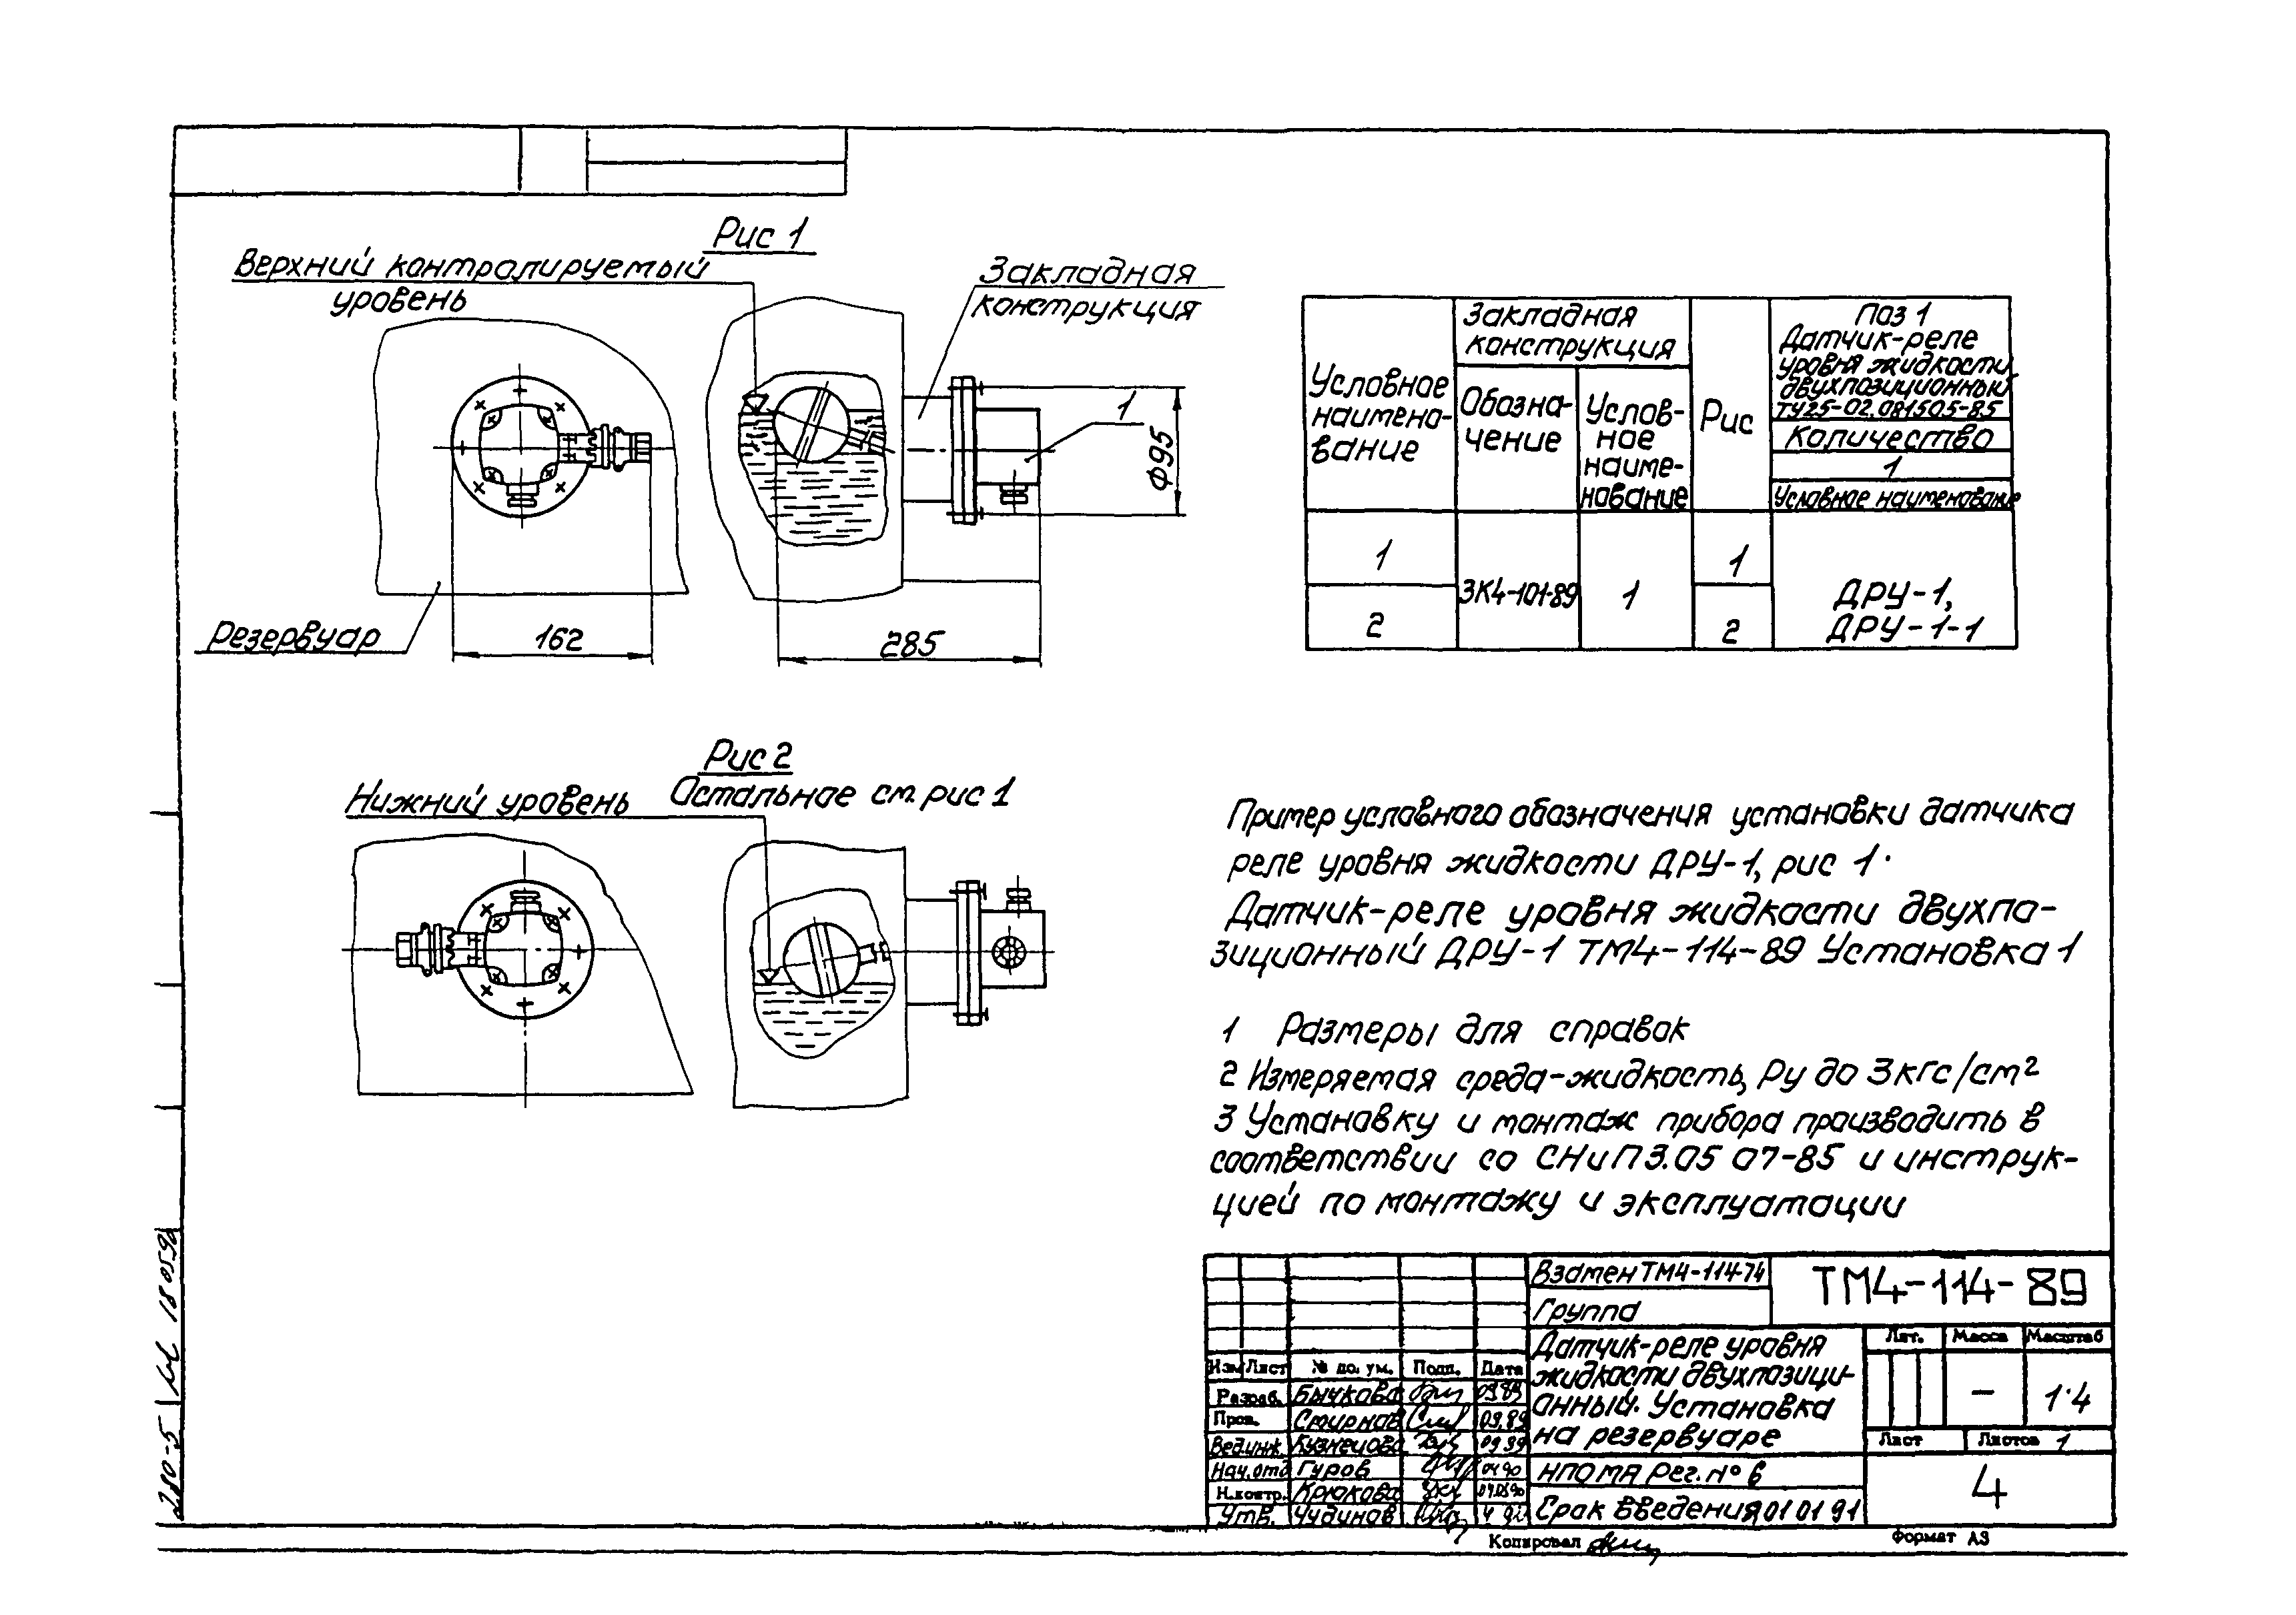 Рис 1
Верхний контролируемый
уровень
Закладная
конструкция
1
Ф95
Резервуар
162
285
Рис 2
Остальное см. рис 1
Нижний уровень
Условное
наимено-
вание
Закладная
конструкция
Обозна-
чение
Услов-
ное
наиме-
нование
Рис
Поз 1
Датчик-реле
уровня жидкости
двухпозиционный
ТУ25-02.081505-85
Количество
1
Условное наименование
1
2
ЗК4-101-89
1
1
2
ДРУ-1,
ДРУ-1-1
Пример условного обозначения установки датчика
реле уровня жидкости ДРУ-1, рис 1.
Датчик-реле уровня жидкости двухпо-
зиционный ДРУ-1 ТМ4-114-89 Установка 1
1 Размеры для справок
2 Измеряемая среда-жидкость, Ру до 3 кгс/см²
3 Установку и монтаж прибора производить в
соответствии со СНиП 3.05 07-85 и инструк-
цией по монтажу и эксплуатации
Взамен ТМ4-114-74
Группа
ТМ4-114-89
Датчик-реле уровня
жидкости двухпозици-
онный. Установка
на резервуаре
Лит. Масса Масштаб
– 1·4
Лист Листов 1
Изм Лист № до. ум. Подп. Дата
Разраб. Бычкова 09.89
Пров. Смирнов 09.89
Вед.инж. Кузнецова 09 89
Нач.отд Гуров 04 90
Н.контр. Крюкова
Утв. Чудинов
НПО МА Рег. № 6
Срок введения 01 01 91
4
Копировал
Формат А3
280-5